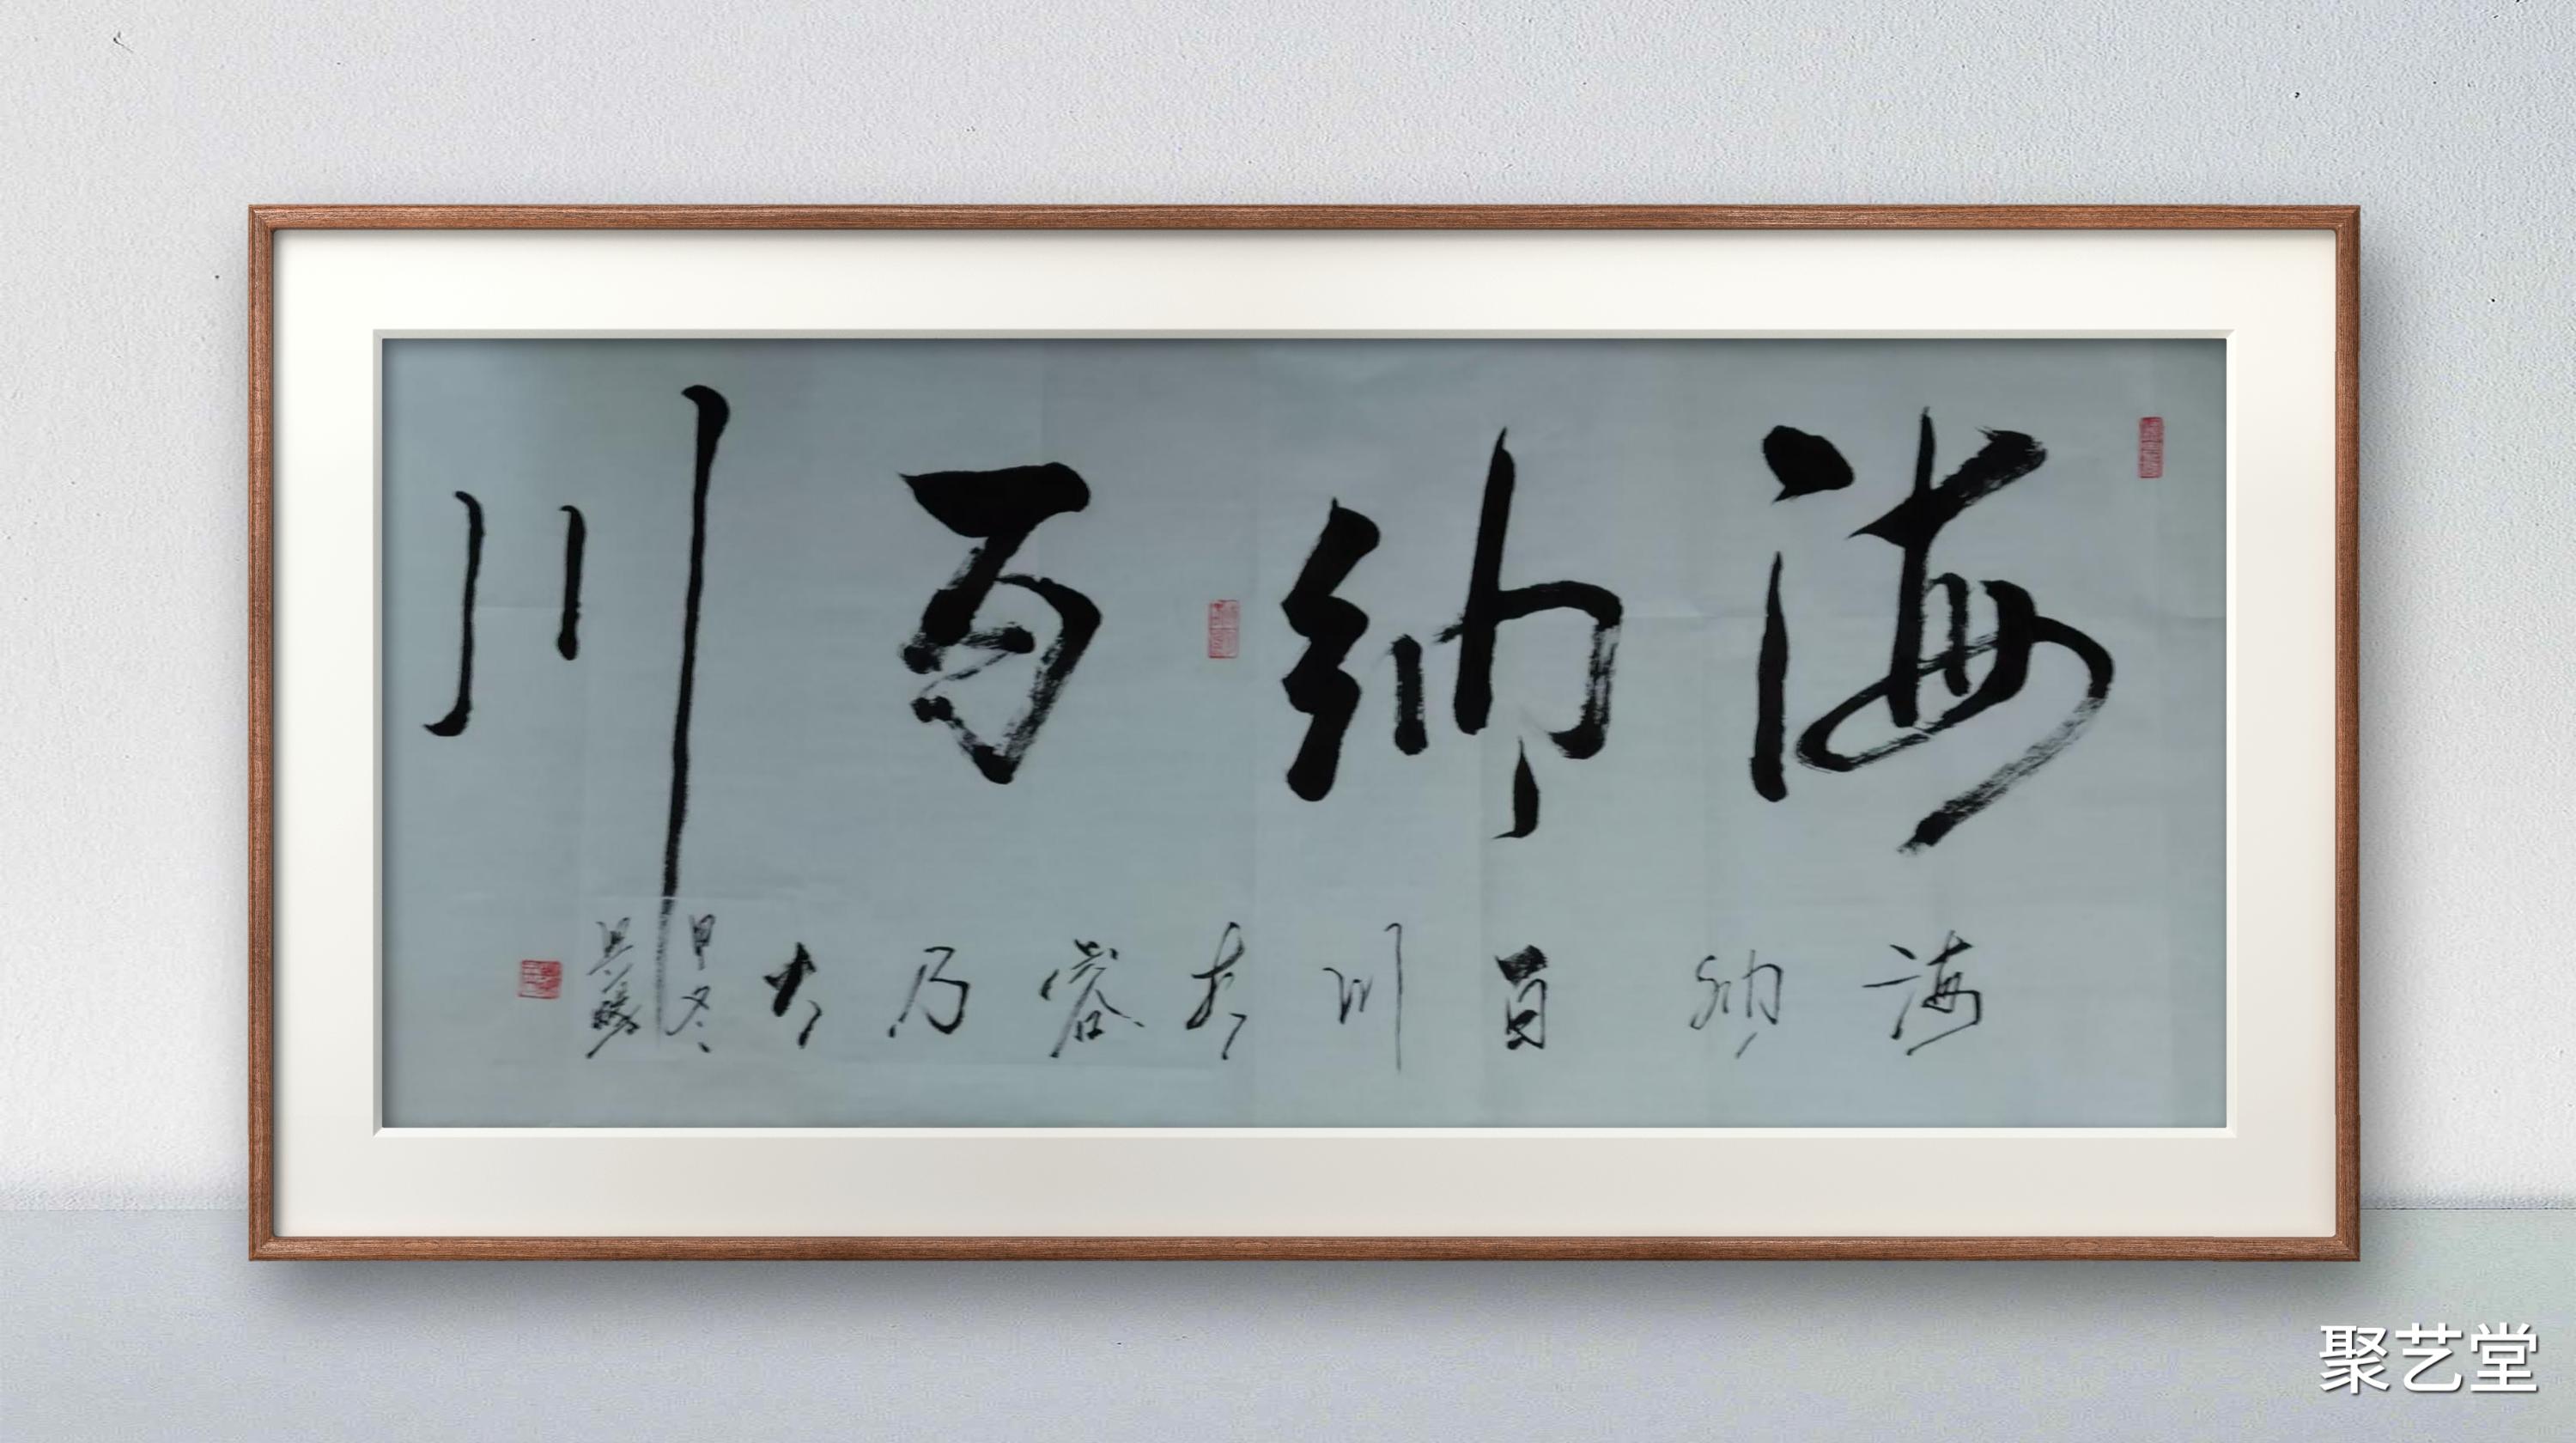 海纳百川
海纳百川有容乃大
聚艺堂